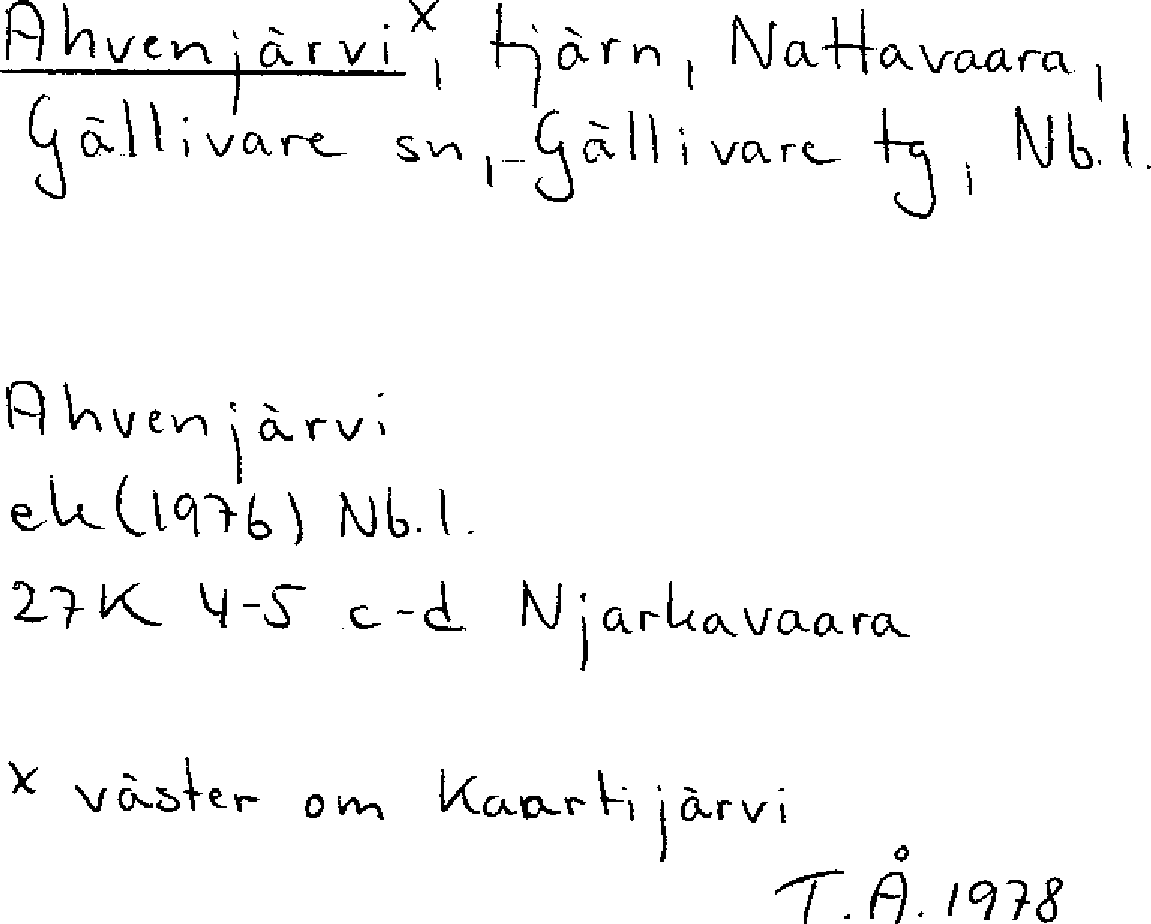 Ahvenjärvi x, tjärn, Nattavaara,
Gällivare sn, Gällivare tg, Nb.l.
Ahvenjärvi
ek (1976) Nb.l.
27K 4-5 c-d Njarkavaara
x väster om Kaartijärvi
T.Å. 1978